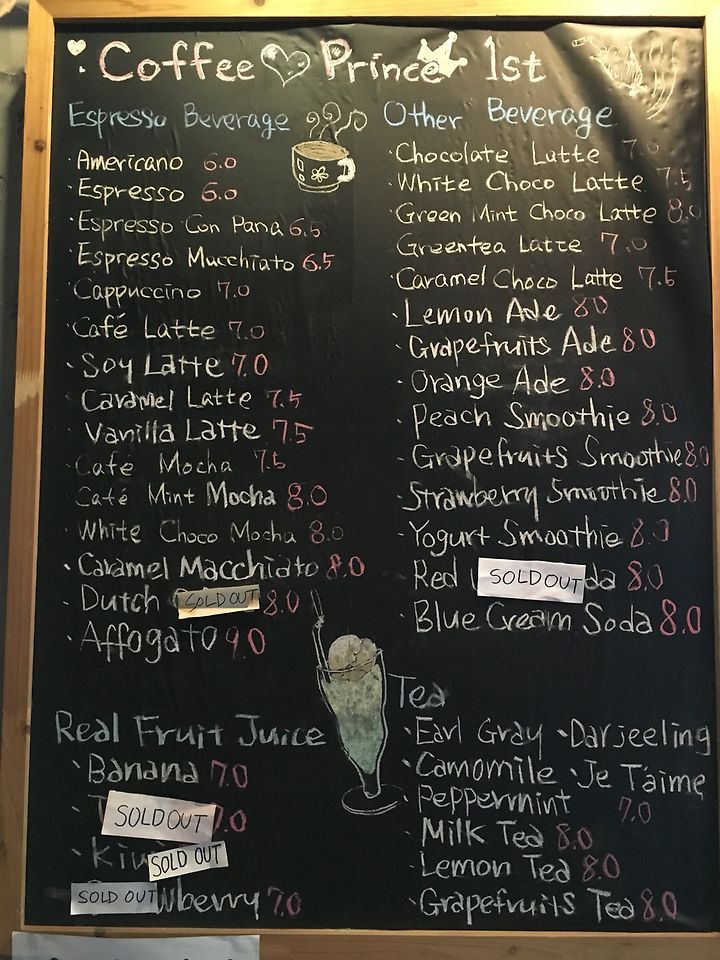 Coffee Prince 1st
Espresso Beverage
Americano 6.0
Espresso 6.0
Espresso Con Pana 6.5
Espresso Mucchiato 6.5
Cappuccino 7.0
Café Latte 7.0
Soy Latte 7.0
Caramel Latte 7.5
Vanilla Latte 7.5
Cafe Mocha 7.5
Café Mint Mocha 8.0
White Choco Mocha 8.0
Caramel Macchiato 8.0
Dutch SOLD OUT 8.0
Affogato 9.0
Real Fruit Juice
Banana 7.0
SOLD OUT 7.0
SOLD OUT
SOLD OUT wberry 7.0
Other Beverage
Chocolate Latte 7.0
White Choco Latte 7.5
Green Mint Choco Latte 8.0
Greentea Latte 7.0
Caramel Choco Latte 7.5
Lemon Ade 8.0
Grapefruits Ade 8.0
Orange Ade 8.0
Peach Smoothie 8.0
Grapefruits Smoothie 8.0
Strawberry Smoothie 8.0
Yogurt Smoothie 8.0
Red SOLD OUT da 8.0
Blue Cream Soda 8.0
Tea
Earl Gray Darjeeling
Camomile Je T'aime
Peppermint 7.0
Milk Tea 8.0
Lemon Tea 8.0
Grapefruits Tea 8.0